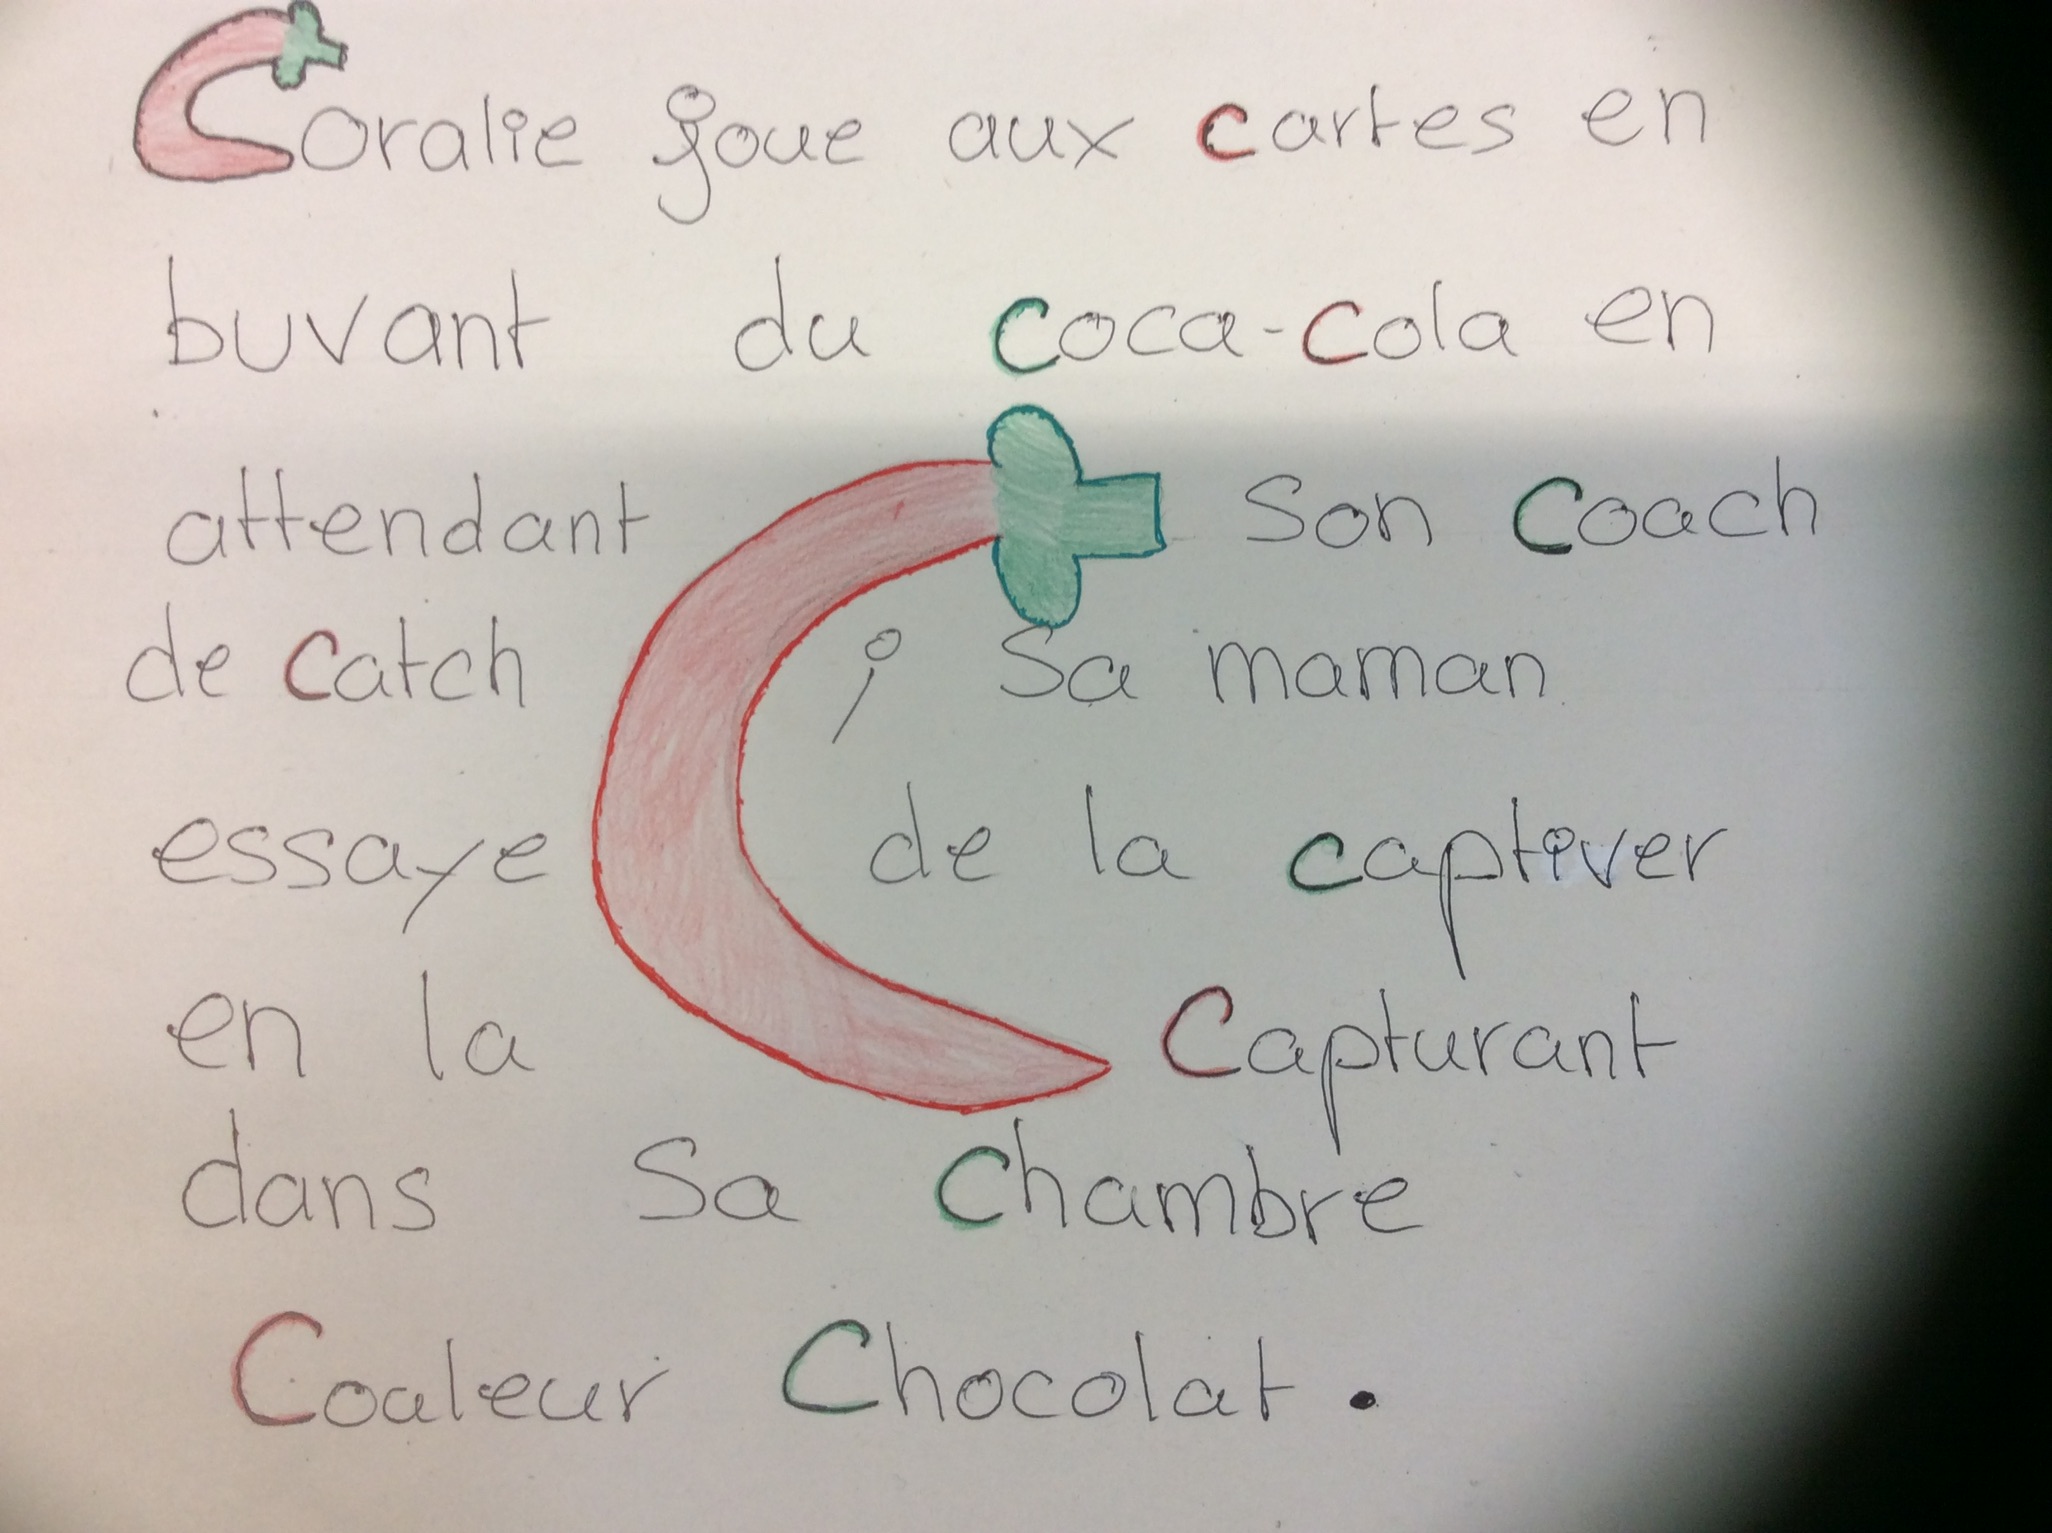 Coralie joue aux cartes en
buvant du coca-cola en
attendant son coach
de catch ; Sa maman
essaye de la captiver
en la Capturant
dans Sa chambre
Couleur Chocolat.